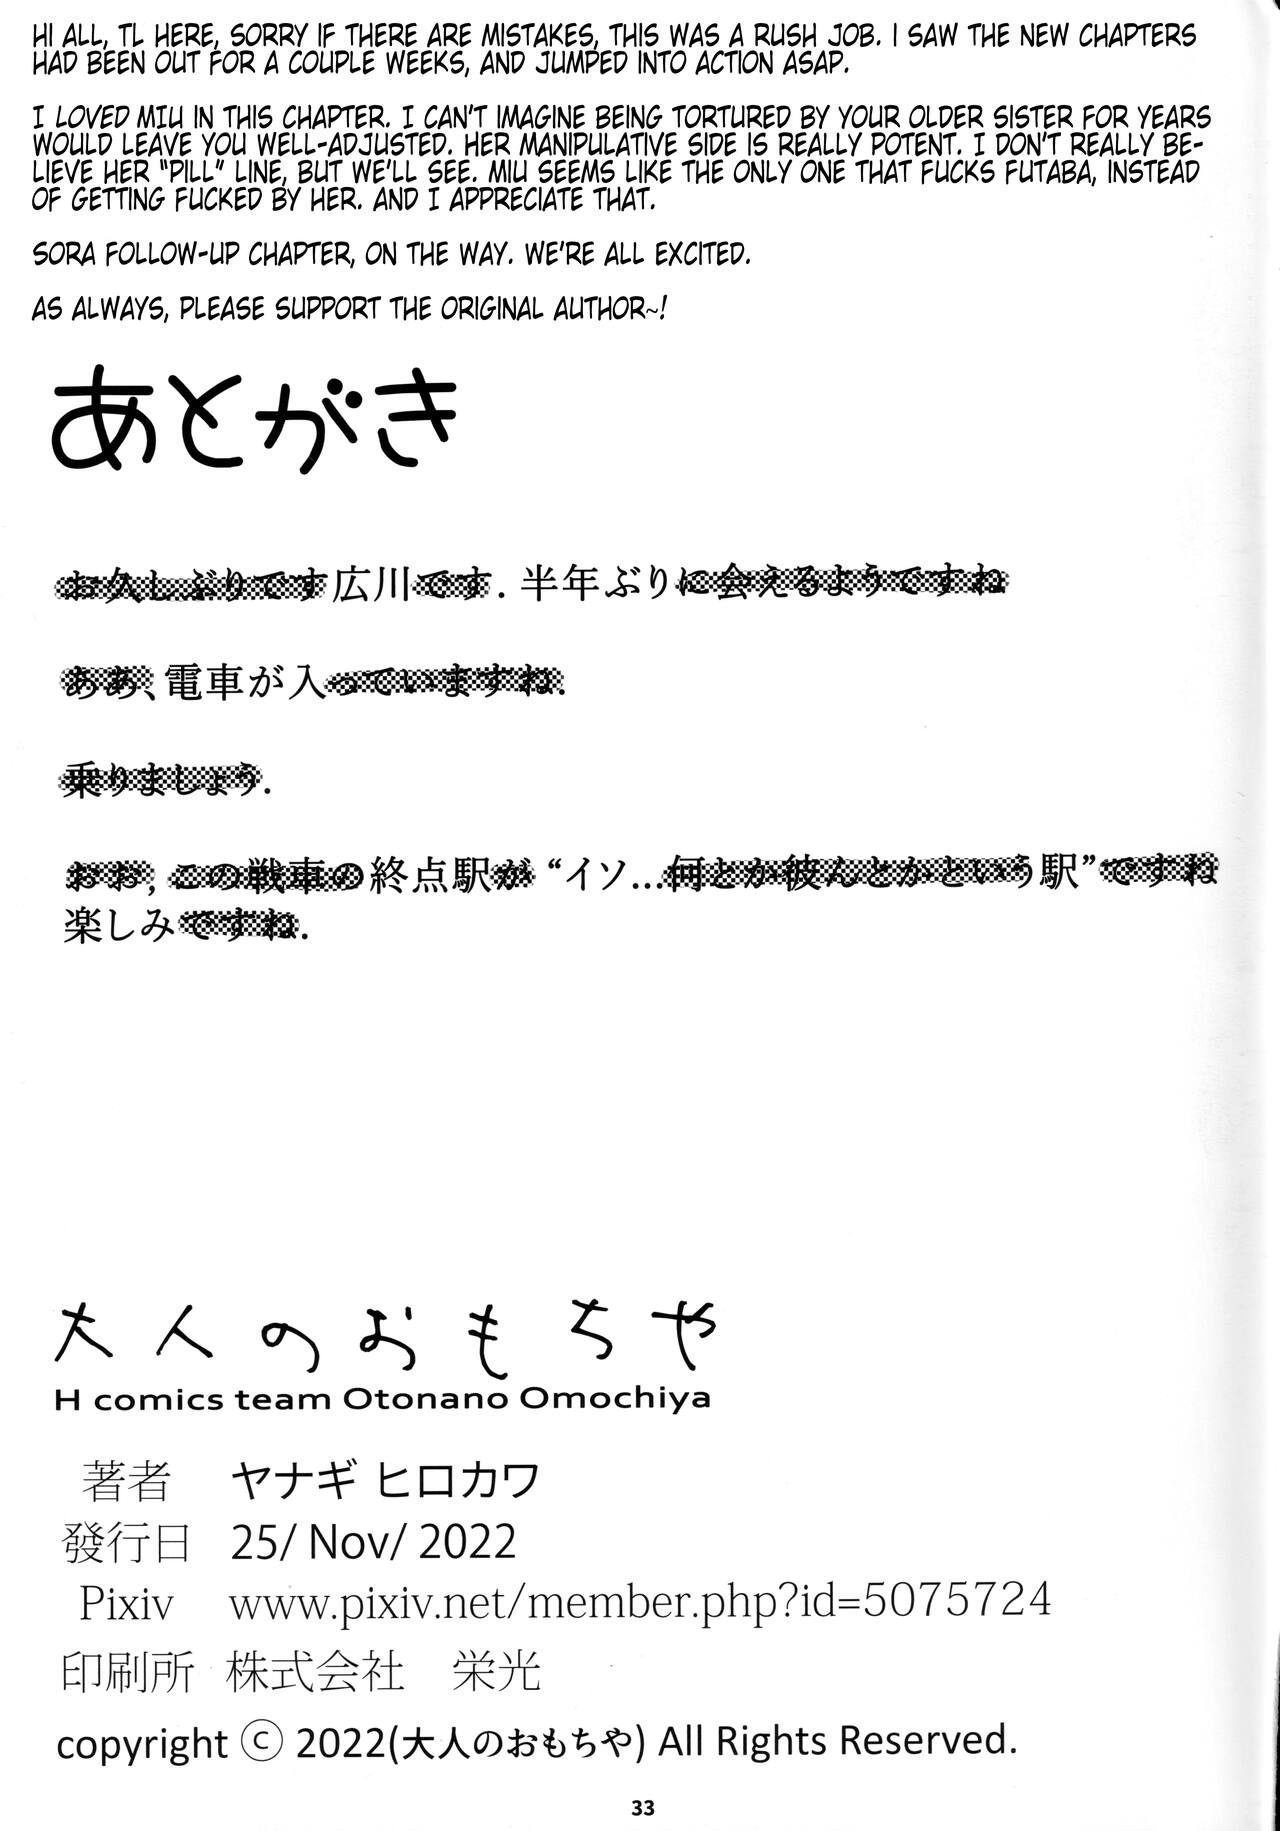 HI ALL, TL HERE, SORRY IF THERE ARE MISTAKES, THIS WAS A RUSH JOB. I SAW THE NEW CHAPTERS
HAD BEEN OUT FOR A COUPLE WEEKS, AND JUMPED INTO ACTION ASAP.
I LOVED MIU IN THIS CHAPTER. I CAN'T IMAGINE BEING TORTURED BY YOUR OLDER SISTER FOR YEARS
WOULD LEAVE YOU WELL-ADJUSTED. HER MANIPULATIVE SIDE IS REALLY POTENT. I DON'T REALLY BE-
LIEVE HER "PILL" LINE, BUT WE'LL SEE. MIU SEEMS LIKE THE ONLY ONE THAT FUCKS FUTABA, INSTEAD
OF GETTING FUCKED BY HER. AND I APPRECIATE THAT.
SORA FOLLOW-UP CHAPTER, ON THE WAY. WE'RE ALL EXCITED.
AS ALWAYS, PLEASE SUPPORT THE ORIGINAL AUTHOR~!
あとがき
お久しぶりです広川です. 半年ぶりに会えるようですね
ああ、電車が入っていますね.
乗りましょう.
おお, この戦車の終点駅が “イソ...何とか彼んとかという駅”ですね
楽しみですね.
大人のおもちや
H comics team Otonano Omochiya
著者 ヤナギ ヒロカワ
發行日 25/ Nov/ 2022
Pixiv www.pixiv.net/member.php?id=5075724
印刷所 株式会社 栄光
copyright ⓒ 2022(大人のおもちや) All Rights Reserved.
33